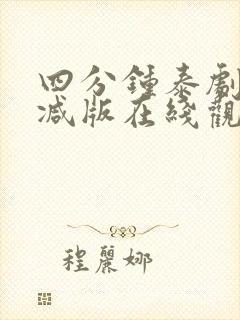 四分鍾泰劇
减版在綫觀
程麗娜